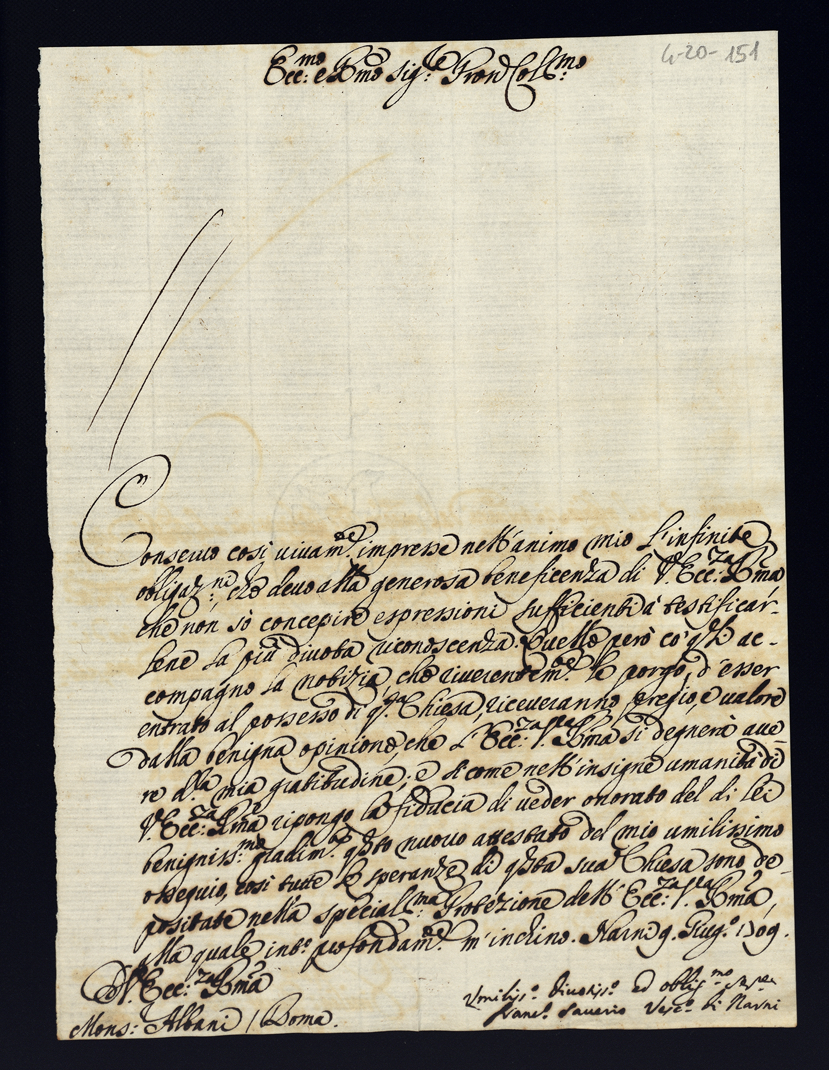 4-20-151
Ecc:mo e Rmo Sig:re Pron Col:mo
Conservo così vivam:te impresse nell'animo mio l'infinite
obligaz:ni, che devo alla generosa beneficenza di V. Ecc:za Rma
che non sò concepire espressioni sufficienti à testificar-
lene la più divota riconoscenza. Quelle però, cō q̄li ac-
compagno la notizia, che riverentem:te le porgo, d'esser
entrato al possesso di q̄sta Chiesa, riceveranno pregio, e valore
dalla benigna opinione, che l'Ecc:za V.ra Rma si degnerà ave-
re d.lla mia gratitudine; e si come nell'insigne umanità di
V. Ecc:za Rma ripongo la fidacia di veder onorato del di lei
benigniss:mo gradim:to q̄sto nuovo attestato del mio umilissimo
ossequio, così tutte le speranze di q̄sta sua Chiesa sono de-
positate nella special:ma Protezione dell'Ecc:za V.ra Rma,
alla quale int:o profondam:te m'inchino. Narni 9. Giug:o 1709.
D. V. Ecc:za Rma
Mons: Albani / Roma.
Umiliss:o Divotiss:o ed oblig:mo
Franc:o Saverio Vesc:o di Narni